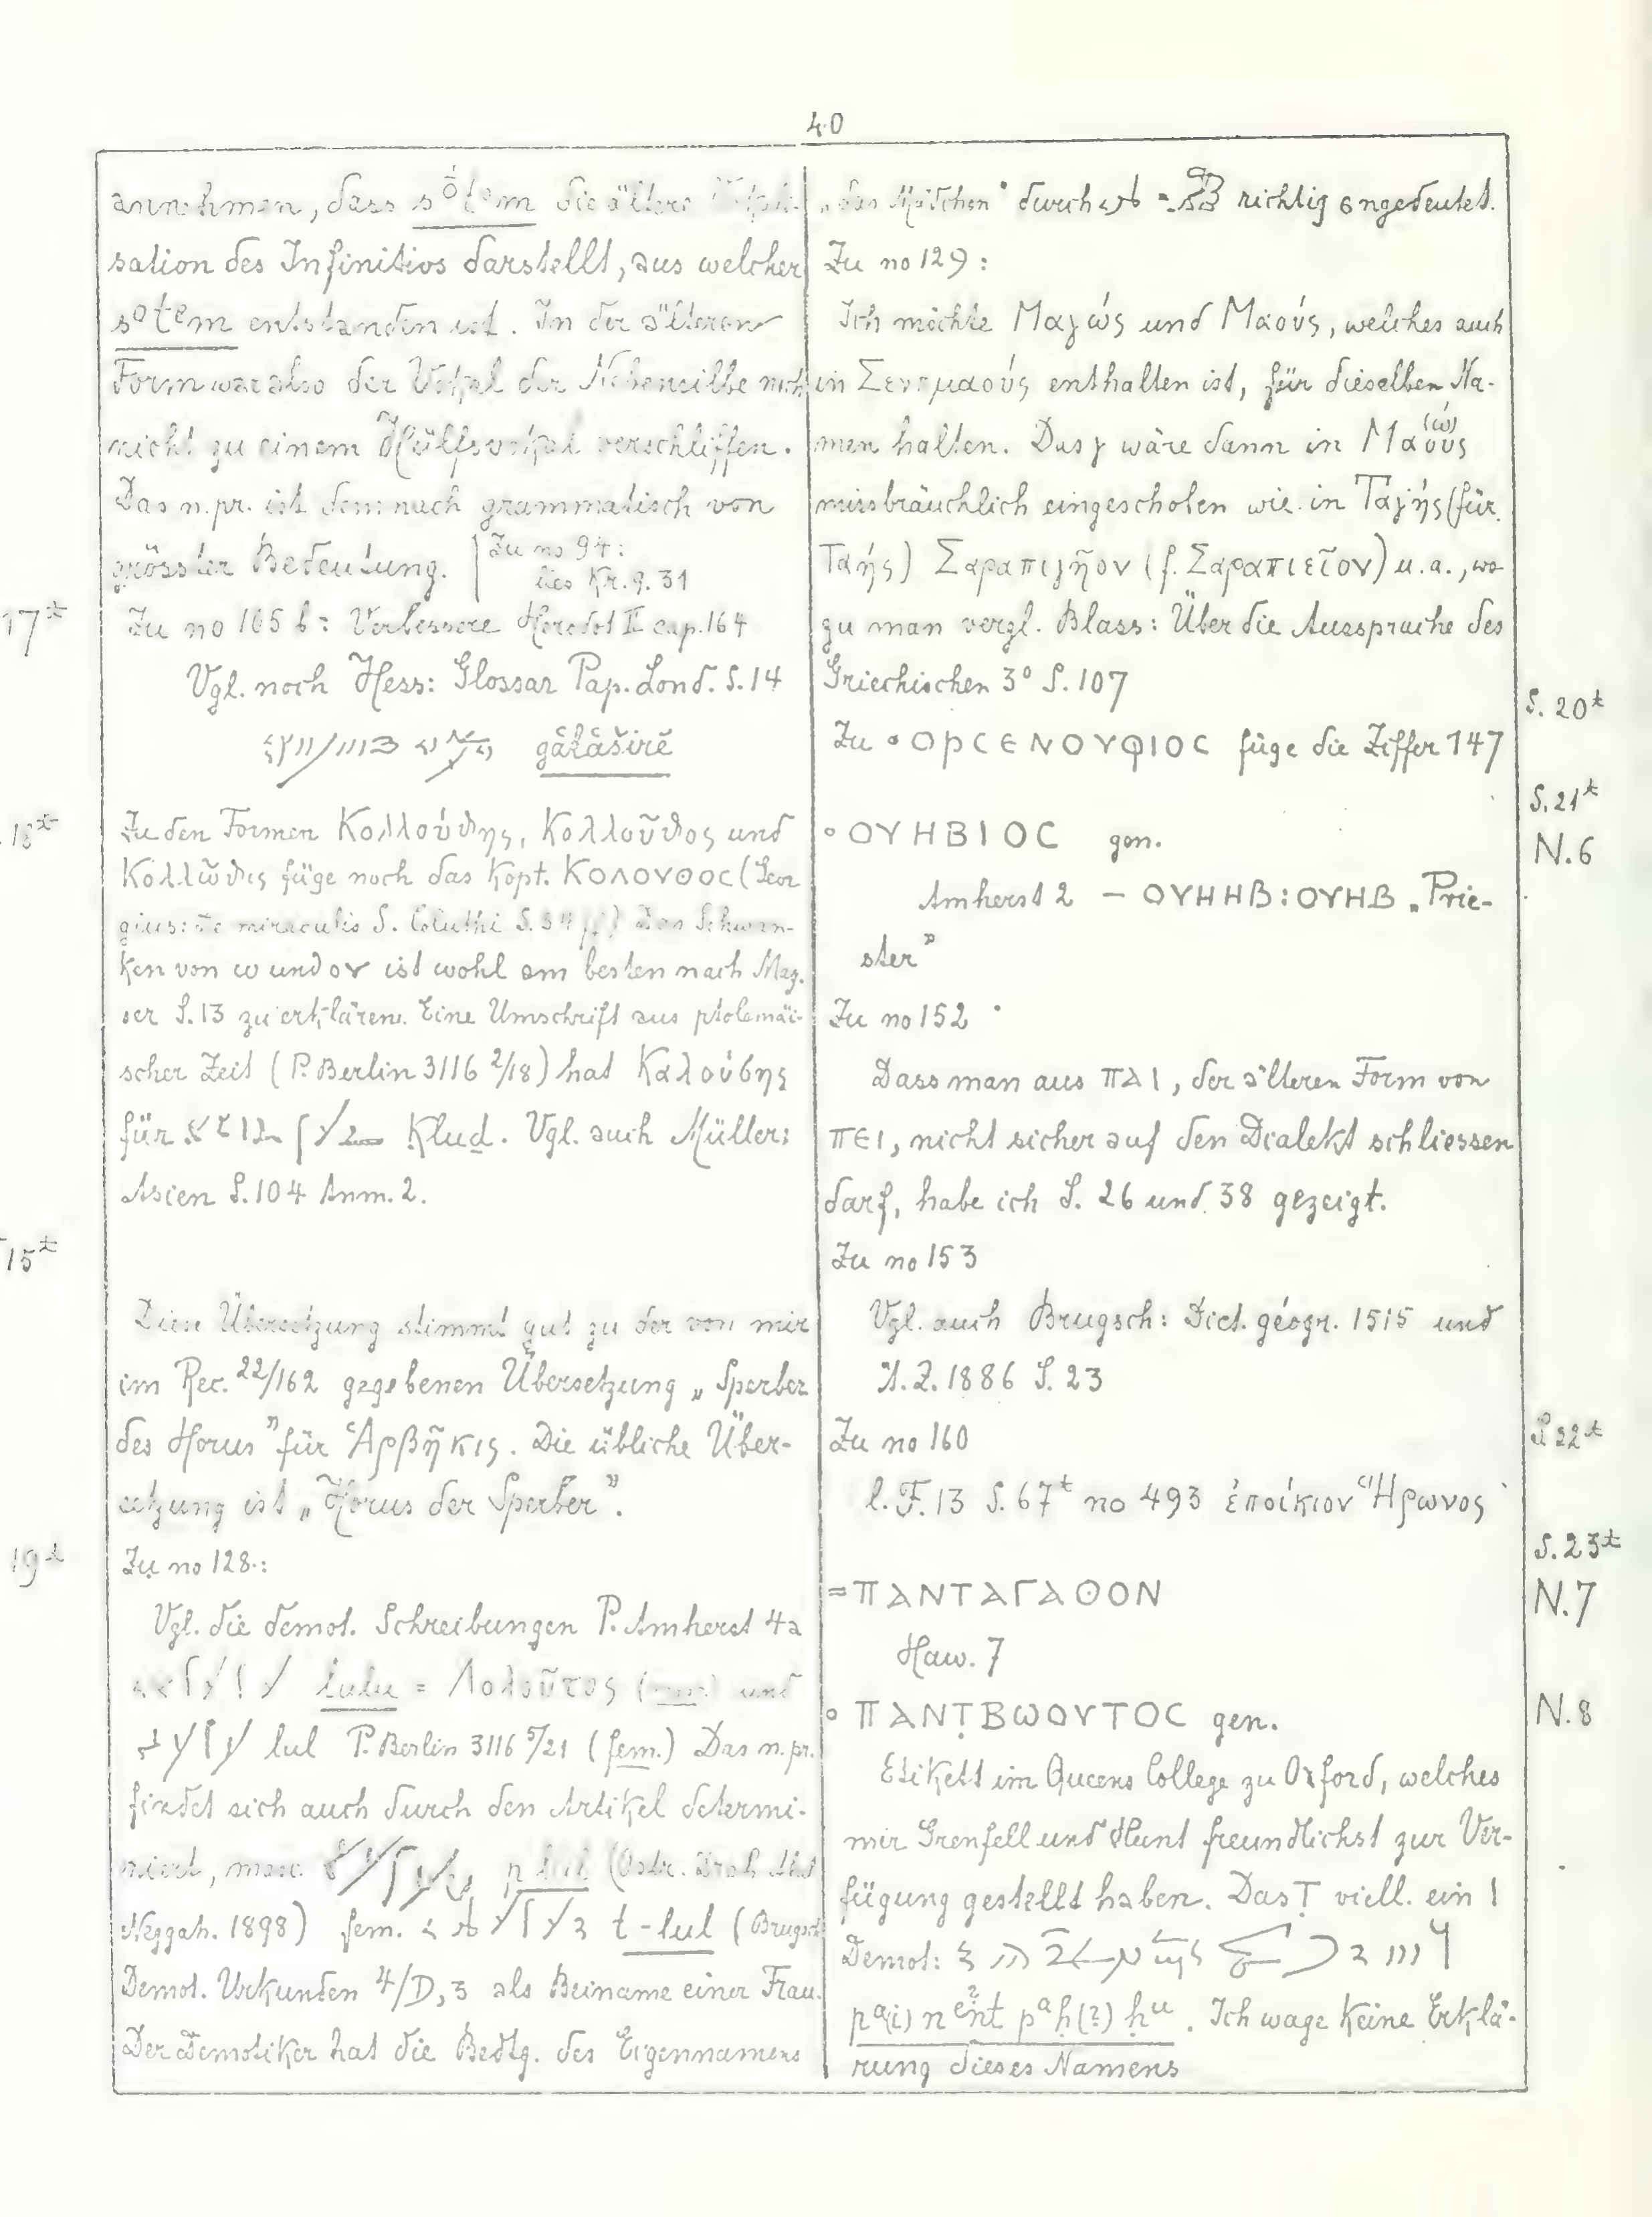 40
annehmen, dass sōtem die ältere
sation des Infinitivs darstellt, aus welcher
sotem entstanden ist. In der älteren
Form war also der Vokal der Nebensilbe noch
nicht zu einem Hülfsvokal verschliffen.
Das n.pr. ist demnach grammatisch von
grösster Bedeutung.
Zu no 94:
lies Kr. 9. 31
17*
Zu no 105 b: Verbessere Herodot II cap. 164
Vgl. noch Hess: Glossar Pap. Lond. S. 14
gălăširĕ
18*
Zu den Formen Κολλούθης, Κολλοῦθος und
Κολλῶθις füge noch das Kopt. ΚΟΛΟΥΘΟC (Geor
gius: de miraculis S. Coluthi S. 34 ff) Das Schwan-
ken von ω und ου ist wohl am besten nach May-
ser S. 13 zu erklären. Eine Umschrift aus ptolemäi-
scher Zeit (P. Berlin 3116 2/18) hat Καλούδης
für Klud. Vgl. auch Müller:
Asien S. 104 Anm. 2.
15*
Diese Übersetzung stimmt gut zu der von mir
im Rec. 22/162 gegebenen Übersetzung „Sperber
des Horus" für Ἁρβῆκις. Die übliche Über-
setzung ist „Horus der Sperber".
19*
Zu no 128:
Vgl. die demot. Schreibungen P. Amherst 4a
lulu = Λολοῦτος und
lul P. Berlin 3116 5/21 (fem.) Das n.pr.
findet sich auch durch den Artikel determi-
niert, masc. p lul (Ostr.
Neggah. 1898) fem. t-lul (Brugsch
Demot. Urkunden 4/D,3 als Beiname einer Frau.
Der Demotiker hat die Bedtg. des Eigennamens
„das Mädchen" durch = richtig angedeutet.
Zu no 129:
Ich möchte Μαγώς und Μαούς, welches auch
in Σενεμαούς enthalten ist, für dieselben Na-
men halten. Das γ wäre dann in Μαούς (ώ)
missbräuchlich eingeschoben wie in Ταγής (für
Ταής) Σαραπιγῆον (f. Σαραπιεῖον) u.a., wo
zu man vergl. Blass: Über die Aussprache des
Griechischen 3° S. 107
S. 20*
Zu ∘ ΟΡCΕΝΟΥΦΙΟC füge die Ziffer 147
S. 21*
∘ ΟΥΗΒΙΟC gen.
N. 6
Amherst 2 – ΟΥΗΗΒ: ΟΥΗΒ „Prie-
ster"
Zu no 152
Dass man aus ΠΑΙ, der älteren Form von
ΠΕΙ, nicht sicher auf den Dialekt schliessen
darf, habe ich S. 26 und 38 gezeigt.
Zu no 153
Vgl. auch Brugsch: Dict. géogr. 1515 und
Ä. Z. 1886 S. 23
S 22*
Zu no 160
l. F. 13 S. 67* no 493 ἐποίκιον Ἥρωνος
S. 23*
= ΠΑΝΤΑΓΑΘΟΝ
N. 7
Haw. 7
∘ ΠΑΝṬΒωΟΥΤΟC gen.
N. 8
Etikett im Queens College zu Oxford, welches
mir Grenfell und Hunt freundlichst zur Ver-
fügung gestellt haben. Das Ṭ viell. ein Ι
Demot:
pa(i) n ent pa ḥ(?) ḥu. Ich wage keine Erklä-
rung dieses Namens